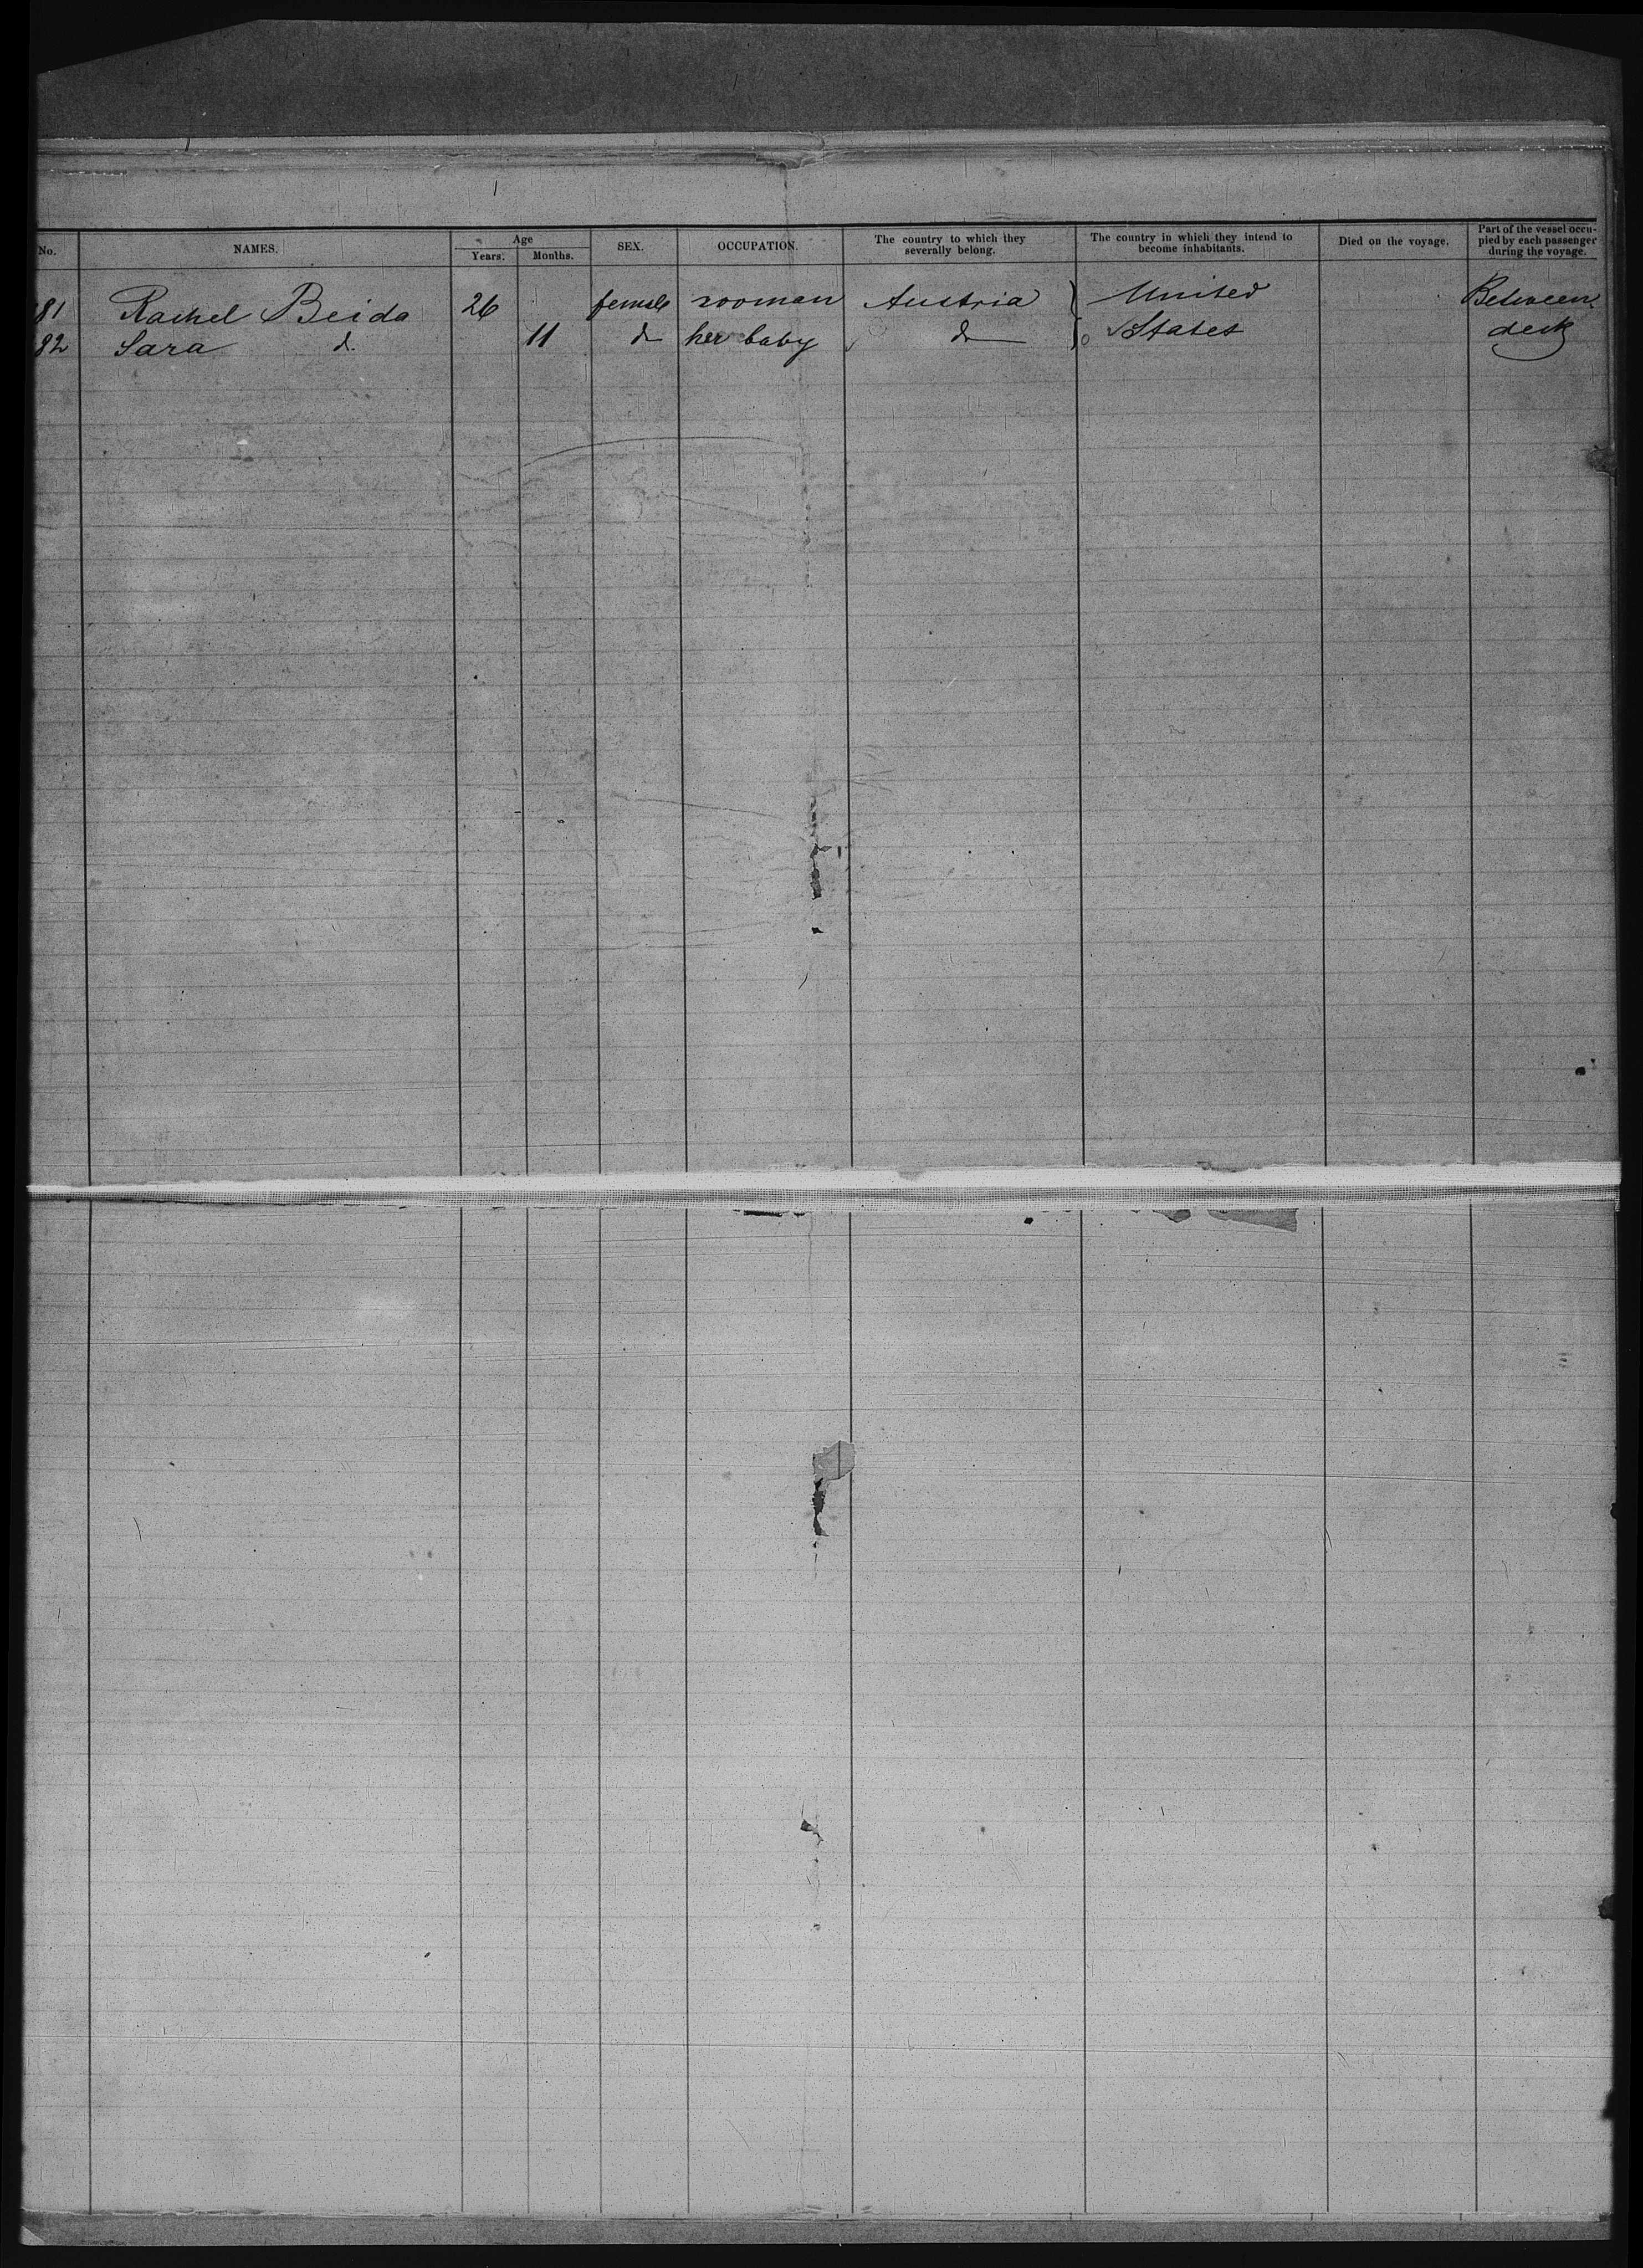 No. NAMES. Age Years. Months. SEX. OCCUPATION. The country to which they severally belong. The country in which they intend to become inhabitants. Died on the voyage. Part of the vessel occupied by each passenger during the voyage.
81 Rachel Beida 26 female woman Austria United Between
82 Sara do. 11 do her baby do States deck